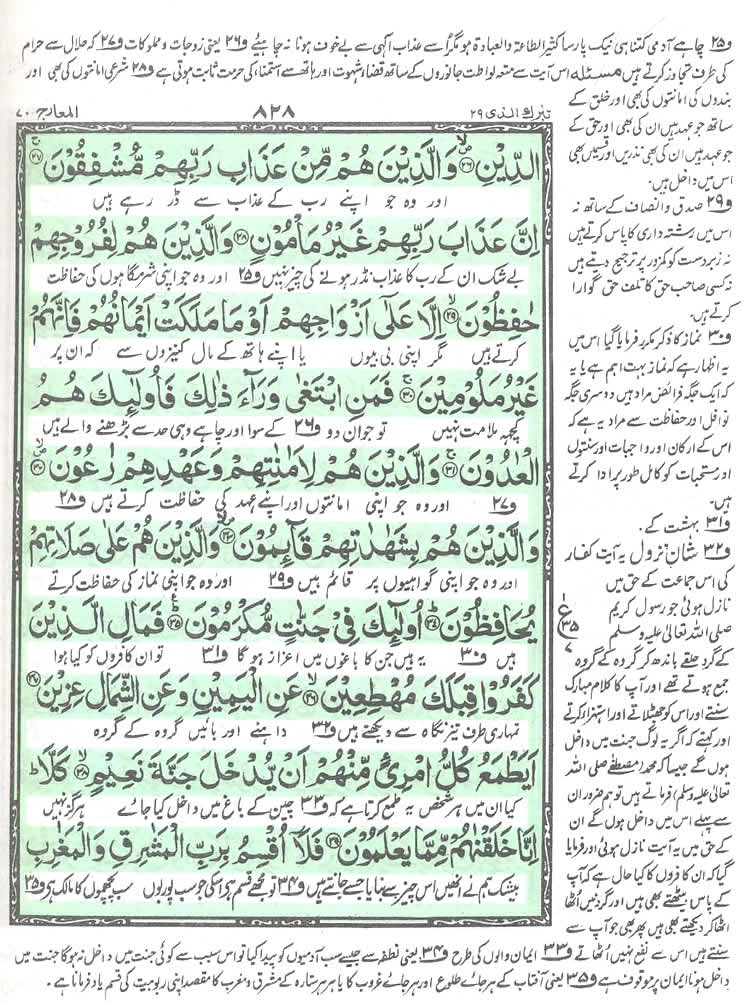 ف۲۵ چاہے آدمی کتنا ہی نیک پارسا کثیر الطاعۃ والعبادۃ ہو مگر اُسے عذاب الٰہی سے بے خوف ہونا نہ چاہیئے ف۲۶ یعنی زوجات و مملوکات ف۲۷ کہ حلال سے حرام
کی طرف تجاوز کرتے ہیں مسئلہ اس آیت سے متعہ لواطت جانوروں کے ساتھ قضاء شہوت اور ہاتھ سے استمنا، کی حرمت ثابت ہوتی ہے ف۲۸ شرعی امانتوں کی بھی اور
بندوں کی امانتوں کی بھی اور خلق کے
ساتھ جو عہد ہیں ان کی بھی اور حق کے
جو عہد ہیں ان کی بھی نذریں اور قسمیں بھی
اس میں داخل ہیں۔
ف۲۹ صدق و انصاف کے ساتھ نہ
اس میں رشتہ داری کا پاس کرتے ہیں
نہ زبردست کو کمزور پر ترجیح دیتے ہیں
نہ کسی صاحب حق کا تلف حق گوارا
کرتے ہیں۔
ف۳۰ نماز کا ذکر مکرر فرمایا گیا اس میں
یہ اظہار ہے کہ نماز بہت اہم ہے یا یہ
کہ ایک جگہ فرائض مراد ہیں دوسری جگہ
نوافل اور حفاظت سے مراد یہ ہے کہ
اس کے ارکان اور واجبات اور سنتوں
اور مستحبات کو کامل طور پر ادا کرتے
ہیں۔
ف۳۱ بہشت کے۔
ف۳۲ شانِ نزول یہ آیت کفار
کی اس جماعت کے حق میں
نازل ہوئی جو رسول کریم
صلی اللہ تعالیٰ علیہ وسلم
کے گرد حلقے باندھ کر گروہ کے گروہ
جمع ہوتے تھے اور آپ کا کلام مبارک
سنتے اور اس کو جھٹلاتے اور استہزاء کرتے
اور کہتے کہ اگر یہ لوگ جنت میں داخل
ہوں گے جیسا کہ محمد (مصطفےٰ صلی اللہ
تعالیٰ علیہ وسلم) فرماتے ہیں تو ہم ضرور ان
سے پہلے اس میں داخل ہوں گے ان
کے حق میں یہ آیت نازل ہوئی اور فرمایا
گیا کہ ان کافروں کا کیا حال ہے کہ آپ
کے پاس بیٹھتے بھی ہیں اور گردنیں اُٹھا
اٹھا کر دیکھتے بھی ہیں پھر بھی جو آپ سے
سنتے ہیں اس سے نفع نہیں اُٹھاتے ف۳۳ ایمان والوں کی طرح ف۳۴ یعنی نطفہ سے جیسے سب آدمیوں کو پیدا کیا تو اس سبب سے کوئی جنت میں داخل نہ ہوگا جنت میں
داخل ہونا ایمان پر موقوف ہے ف۳۵ یعنی آفتاب کے ہر جائے طلوع اور ہر جائے غروب کا یا ہر ہر ستارہ کے مشرق و مغرب کا مقصد اپنی ربوبیت کی قسم یاد فرمانا ہے۔
تبٰرک الذی ۲۹ ۸۲۸ المعارج ۷۰
الدِّيْنِ ۝۲۶ وَالَّذِيْنَ هُمْ مِّنْ عَذَابِ رَبِّهِمْ مُّشْفِقُوْنَ ۝۲۷
اور وہ جو اپنے رب کے عذاب سے ڈر رہے ہیں
اِنَّ عَذَابَ رَبِّهِمْ غَيْرُ مَاْمُوْنٍ ۝۲۸ وَالَّذِيْنَ هُمْ لِفُرُوْجِهِمْ
بے شک ان کے رب کا عذاب نڈر ہونے کی چیز نہیں ف۲۵ اور وہ جو اپنی شرمگاہوں کی حفاظت
حٰفِظُوْنَ ۝۲۹ اِلَّا عَلٰٓى اَزْوَاجِهِمْ اَوْ مَا مَلَكَتْ اَيْمَانُهُمْ فَاِنَّهُمْ
کرتے ہیں مگر اپنی بی بیوں یا اپنے ہاتھ کے مال کنیزوں سے کہ ان پر
غَيْرُ مَلُوْمِيْنَ ۝۳۰ فَمَنِ ابْتَغٰى وَرَآءَ ذٰلِكَ فَاُولٰٓئِكَ هُمُ
کچھ ملامت نہیں تو جو ان دو ف۲۶ کے سوا اور چاہے وہی حد سے بڑھنے والے ہیں
الْعٰدُوْنَ ۝۳۱ وَالَّذِيْنَ هُمْ لِاَمٰنٰتِهِمْ وَعَهْدِهِمْ رٰعُوْنَ ۝۳۲
ف۲۷ اور وہ جو اپنی امانتوں اور اپنے عہد کی حفاظت کرتے ہیں ف۲۸
وَالَّذِيْنَ هُمْ بِشَهٰدٰتِهِمْ قَآئِمُوْنَ ۝۳۳ وَالَّذِيْنَ هُمْ عَلٰى صَلَاتِهِمْ
اور وہ جو اپنی گواہیوں پر قائم ہیں ف۲۹ اور وہ جو اپنی نماز کی حفاظت کرتے
يُحَافِظُوْنَ ۝۳۴ اُولٰٓئِكَ فِيْ جَنّٰتٍ مُّكْرَمُوْنَ ۝۳۵ فَمَالِ الَّذِيْنَ
ہیں ف۳۰ یہ ہیں جن کا باغوں میں اعزاز ہوگا ف۳۱ تو ان کافروں کو کیا ہوا
ع ۳۵ ۷
كَفَرُوْا قِبَلَكَ مُهْطِعِيْنَ ۝۳۶ عَنِ الْيَمِيْنِ وَعَنِ الشِّمَالِ عِزِيْنَ ۝۳۷
تمہاری طرف تیز نگاہ سے دیکھتے ہیں ف۳۲ داہنے اور بائیں گروہ کے گروہ
اَيَطْمَعُ كُلُّ امْرِئٍ مِّنْهُمْ اَنْ يُّدْخَلَ جَنَّةَ نَعِيْمٍ ۝۳۸ كَلَّا ؕ
کیا ان میں ہر شخص یہ طمع کرتا ہے کہ ف۳۳ چین کے باغ میں داخل کیا جائے ہرگز نہیں
اِنَّا خَلَقْنٰهُمْ مِّمَّا يَعْلَمُوْنَ ۝۳۹ فَلَآ اُقْسِمُ بِرَبِّ الْمَشٰرِقِ وَالْمَغٰرِبِ
بیشک ہم نے انھیں اس چیز سے بنایا جسے جانتے ہیں ف۳۴ تو مجھے قسم ہے اسکی جو سب پوربوں سب پچھموں کا مالک ہے ف۳۵